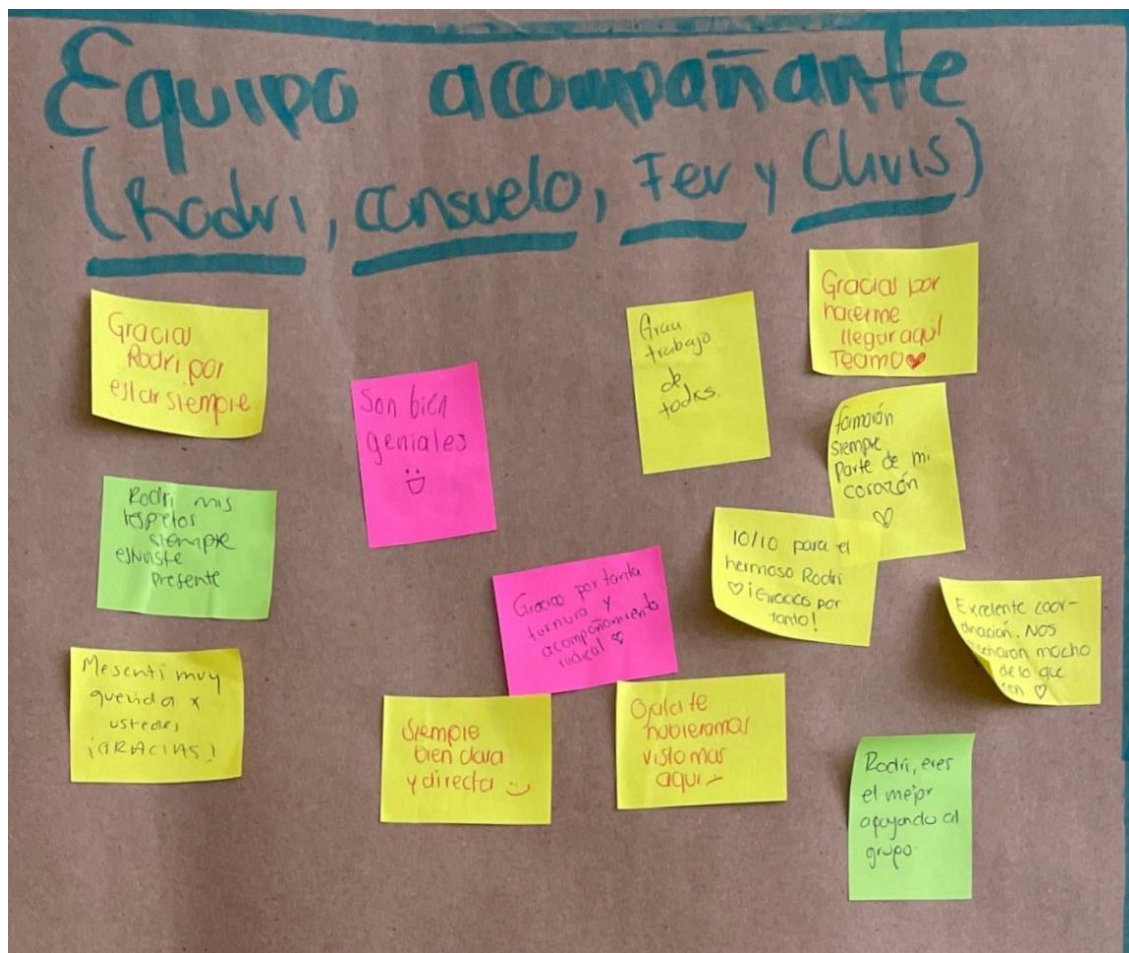 Equipo acompañante
(Rodri, consuelo, Fer y Clivis)
Gracias
Rodri por
estar siempre
Son bien
geniales
Gran
trabajo
de
todxs.
Gracias por
hacerme
llegar aquí!
Teamo
formarán
siempre
parte de mi
corazón
Rodri mis
respetos
siempre
estuviste
presente
10/10 para el
hermoso Rodri
¡Gracias por
tanto!
Gracias por tanta
ternura y
acompañamiento
radical
Excelente coor-
dinación. NOS
mucho
de lo que
Me sentí muy
querida x
ustedes
¡GRACIAS!
Siempre
bien clara
y directa
Ojalá te
hubieramos
visto mas
aqui
Rodri, eres
el mejor
apoyando al
grupo.